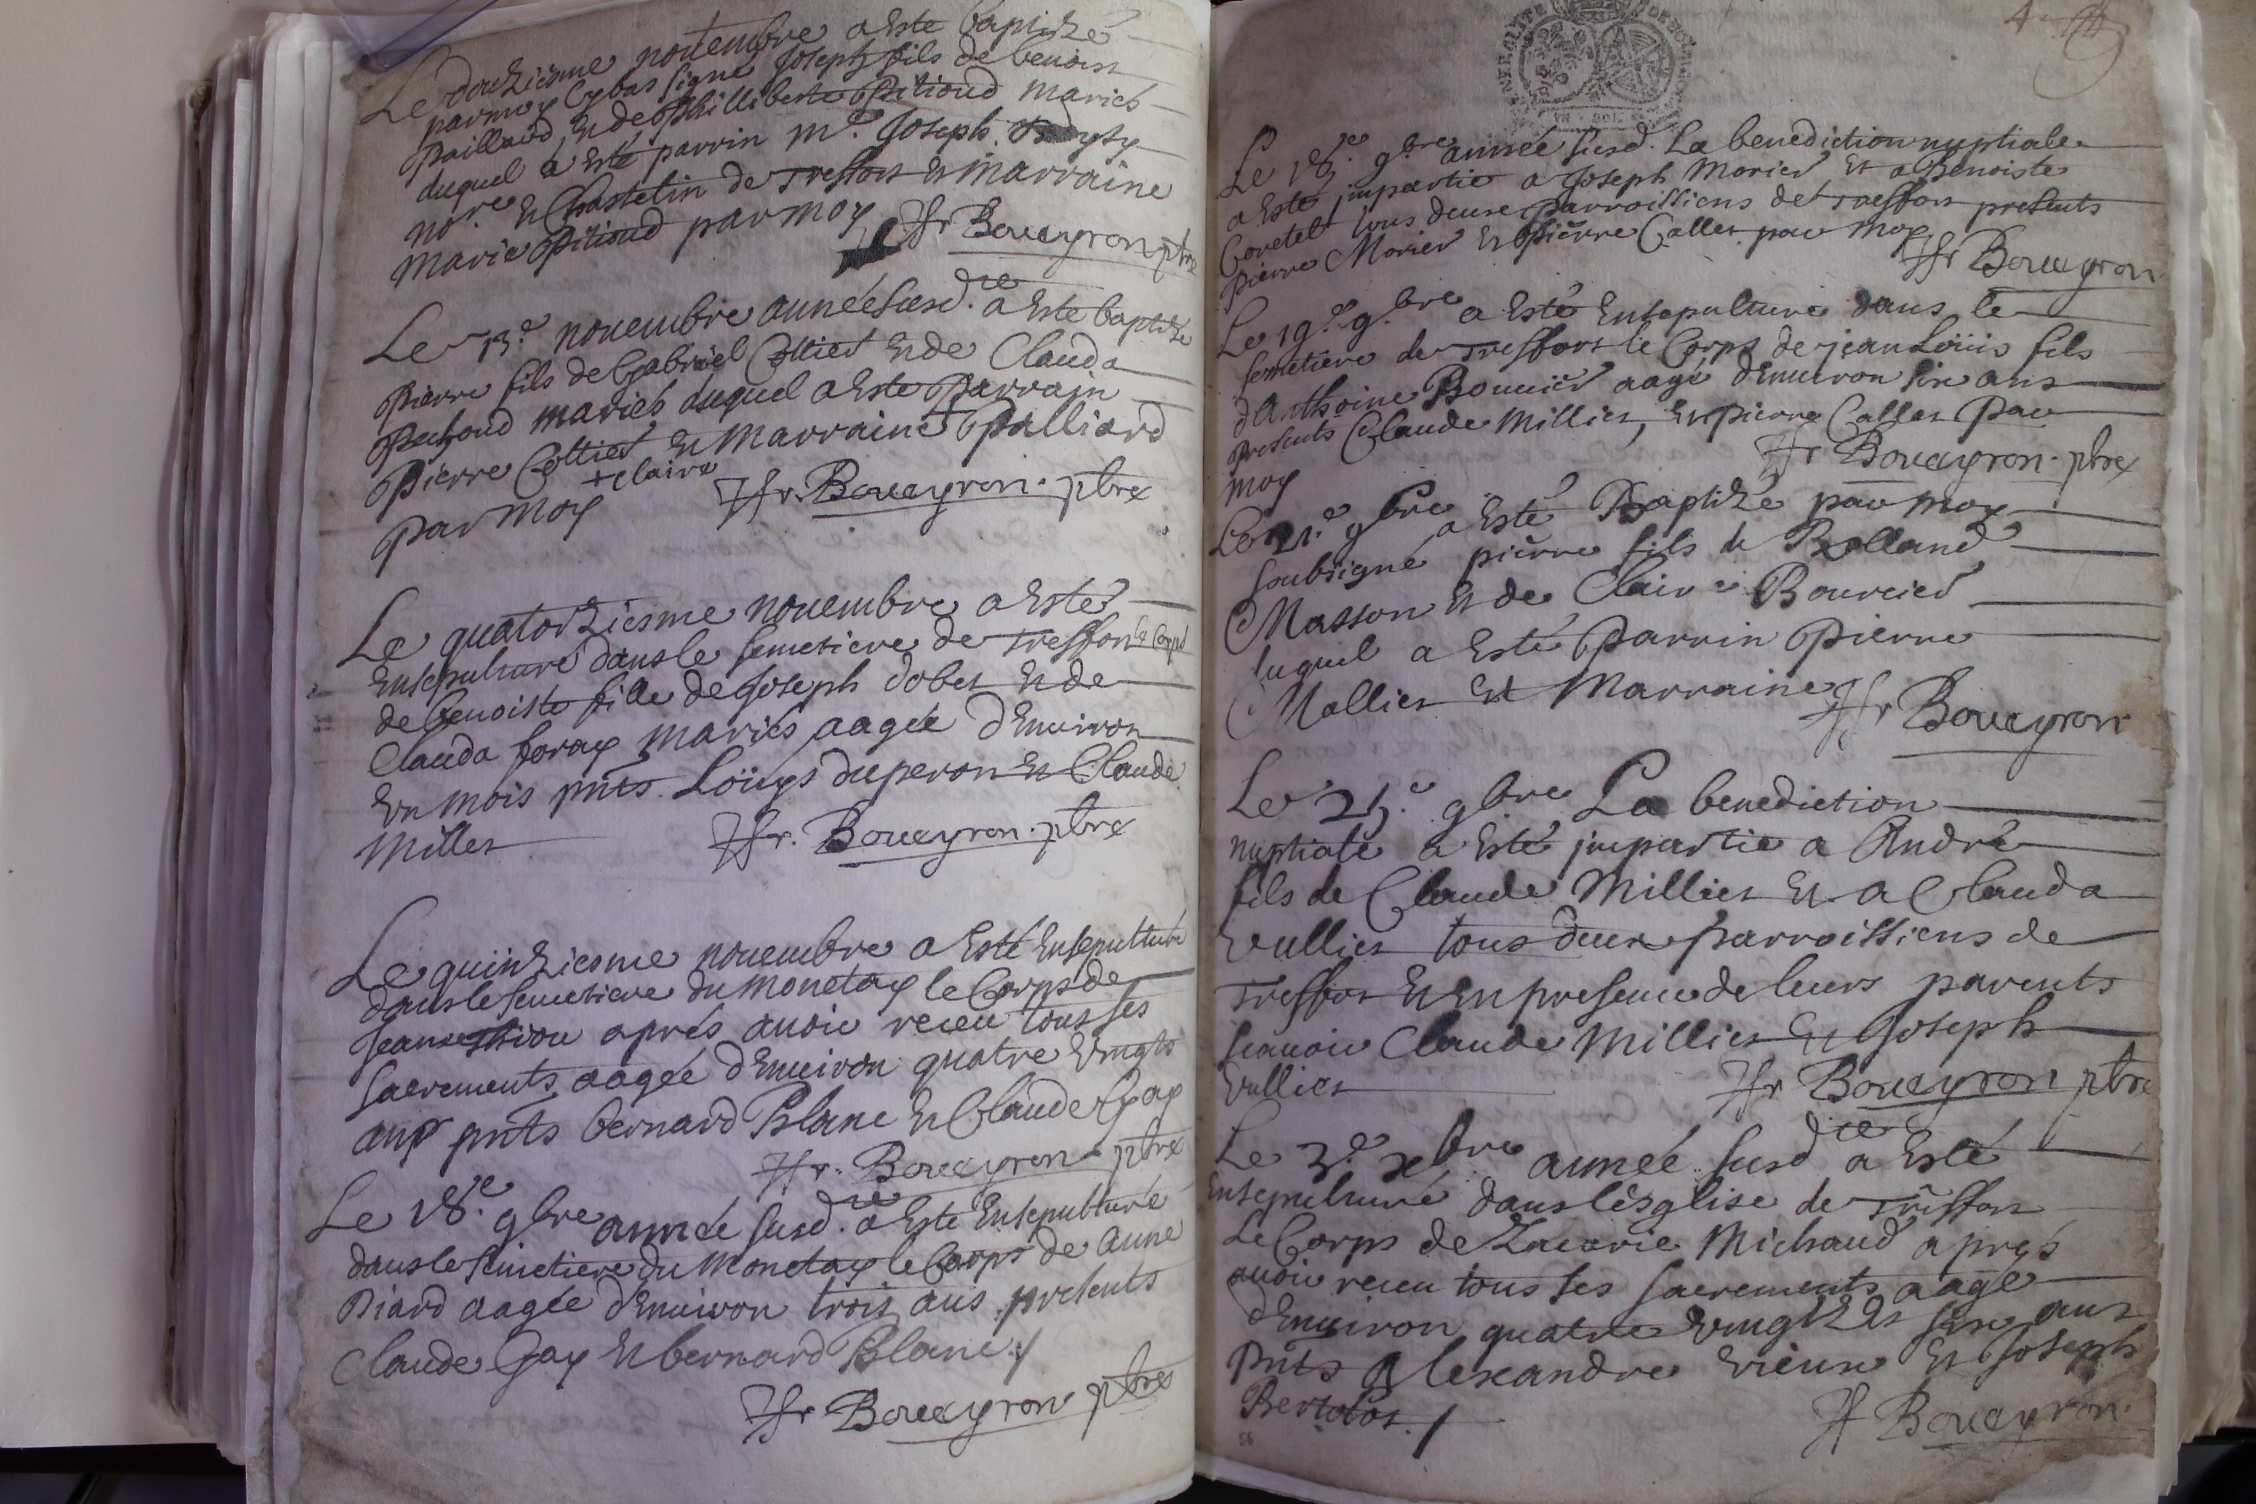 Le douziesme nouembre a Esté baptizé
parmoy Cybas signé Joseph fils de benoist
paillard, En de Philliberte Pitioud mariés
duquel a Esté parrin Mr. Joseph
nore. En Chastelin de Treffort En Marraine
marie Pitioud par moy
Hr Boueyron ptre
Le 13.e nouembre année susd.tte a Esté baptizé
Pierre fils de Gabriel Cottier En de Clauda
Pechoud mariés duquel a Esté Parrain
Pierre Cottier En Marraine + Palliard
+ Claire
par moy Hr. Boueyron. ptre
Le quatorziesme nouembre a Esté
Ensepulturé dans le semetiere de Treffort le Corps
de benoiste fille de Joseph dobet En de
Clauda foray mariés aagée d'Enuiron
Vn mois pnts. Loüys duperon En Claude
Millet Hr. Boueyron. ptre
Le quinziesme nouembre a Esté Ensepulturé
dans le semetiere du Monetay le Corps de
Jeanne après auoir receu tous ses
sacrements aagée d'Enuiron quatre Vingts
ans pnts bernard Blanc En Claude Gay
Hr. Boueyron ptre
Le 18.e 9bre année susd.tte a Esté Ensepulturé
dans le semetiere du Monetay le Corps de anne
Piard aagée d'Enuiron trois ans presents
Claude Gay En bernard Blanc /
Hr Boueyron ptre
4
VII. SOL.
Le 18.e 9bre année susd. La benediction nuptiale
a Esté impartie a Joseph Morier Et a Benoiste
Couetet tous deux parroissiens de Treffort presents
pierre Morier En pierre Callet par moy
Hr Boueyron
Le 19.e 9.bre a Esté Ensepulturé dans le
semetiere de Treffort le Corps de jean Loüis fils
d'Anthoine Bouuier aagé d'Enuiron six ans
presents Claude Millier, En pierre Callet par
moy Hr Boueyron. ptre
Le 21.e 9bre a Esté Baptizé par moy
soubsigné pierre fils de Rolland
Masson En de Claire Bourcier
luquel a Esté Parrin Pierre
Mollier Et Marraine
Hr Boueyron
Le 25.e 9bre La benediction
nuptiale a Esté impartie a André
fils de Claude Millier En a Clauda
Vullier tous deux parroissiens de
Treffort En En presence de leurs parents
scauoir Claude Millier En Joseph
Vullier Hr Boueyron ptre
Le 3.e xbre année susd.tte a Esté
Ensepulturé dans l'Esglise de Treffort
Le Corps de Zacarie Michaud après
auoir receu tous ses sacrements aagé
d'Enuiron quatre Vingtz En six ans
pnts Alexandre Vieux Et Joseph
Hr Boueyron.